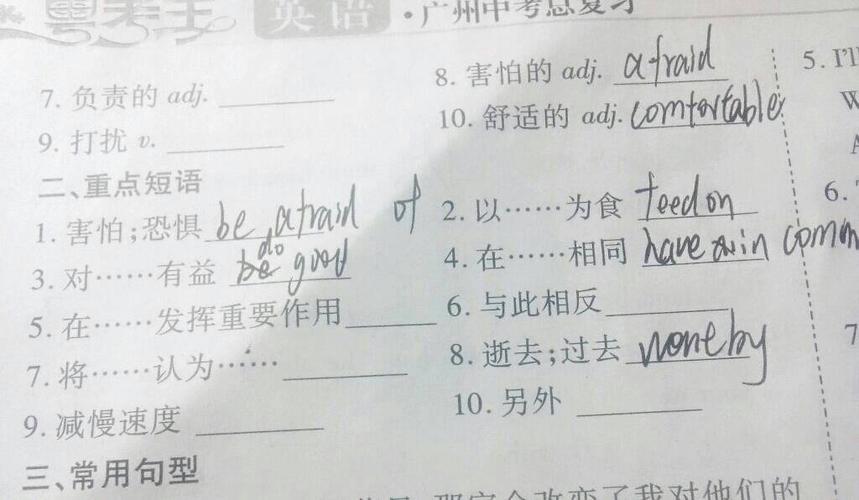 粤考王 英语·广州中考总复习
7. 负责的 adj. ______ 8. 害怕的 adj. afraid 5. I'll
9. 打扰 v. ______ 10. 舒适的 adj. comfortable W
二、重点短语
1. 害怕;恐惧 be afraid of 2. 以……为食 feed on 6.
3. 对……有益 do good 4. 在……相同 have in comm
5. 在……发挥重要作用______ 6. 与此相反______
7. 将……认为…… ______ 8. 逝去;过去 by 7
9. 减慢速度 ______ 10. 另外 ______
三、常用句型
改变了我对他们的